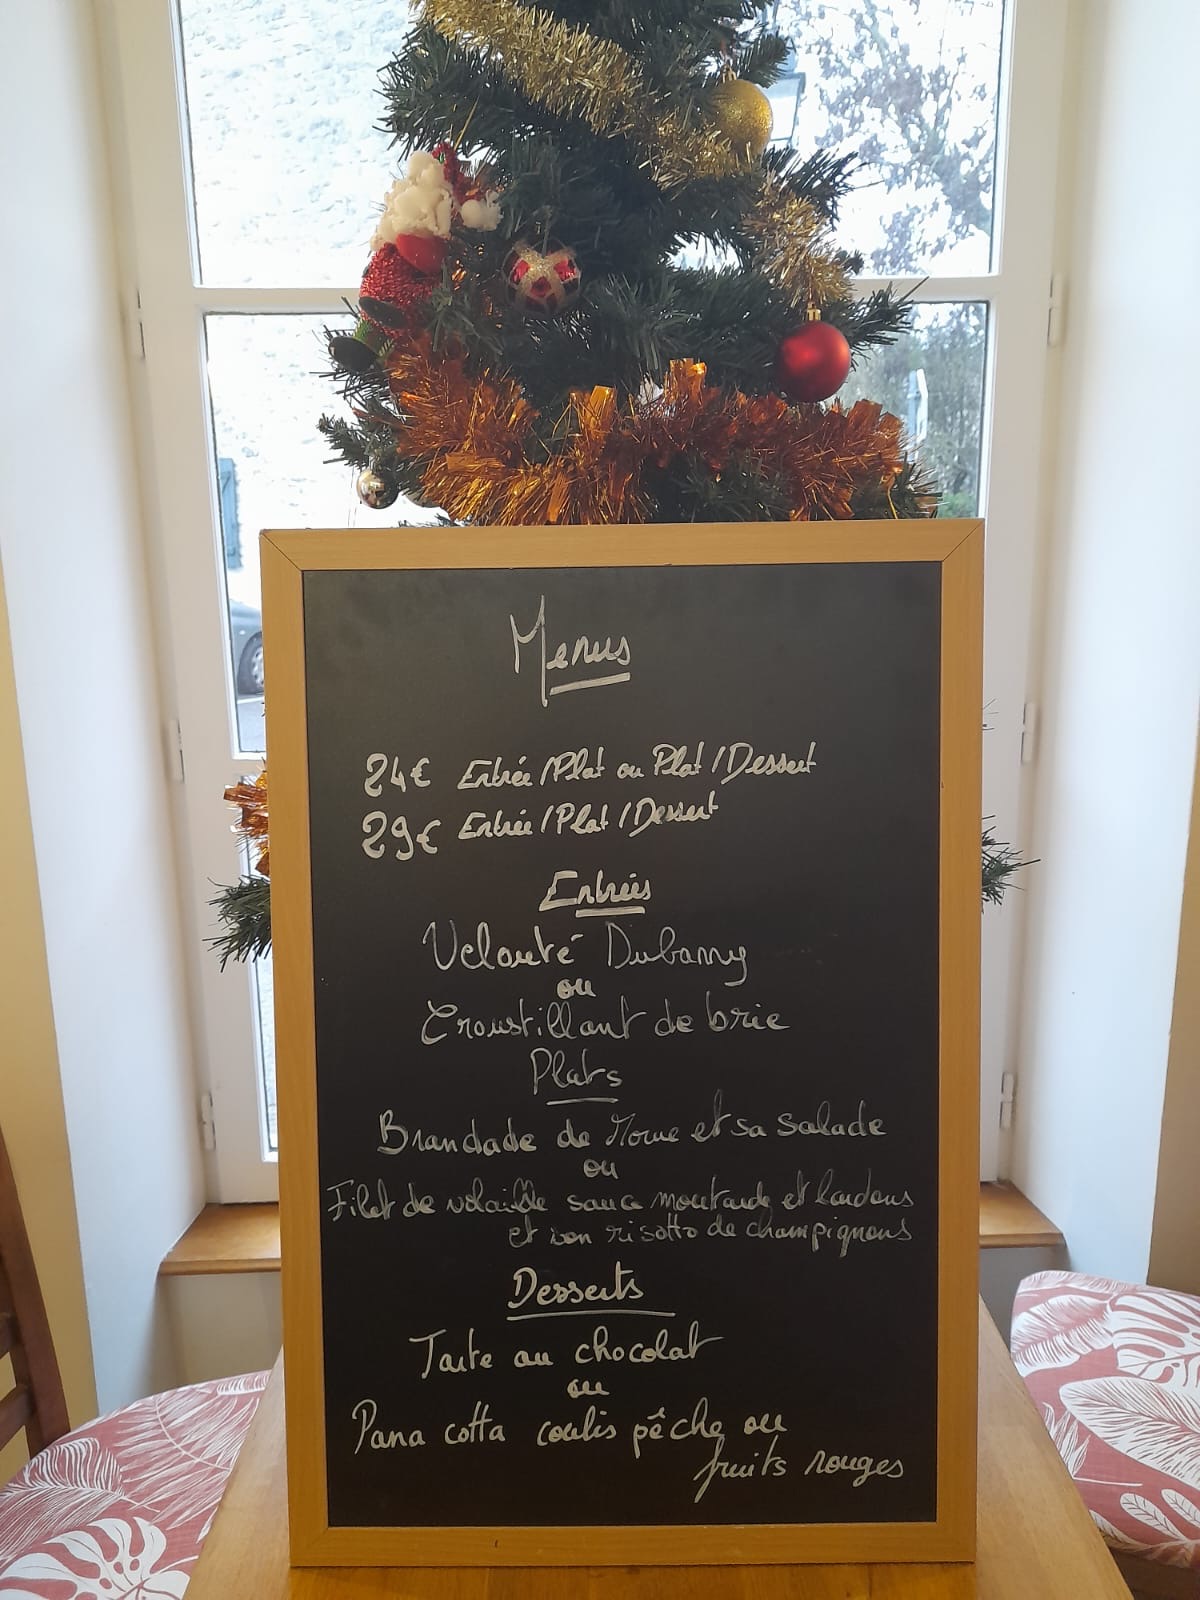 Menus
24€ Entrée/Plat ou Plat/Dessert
29€ Entrée/Plat/Dessert
Entrées
Velouté Dubarry
ou
Croustillant de brie
Plats
Brandade de Morue et sa salade
ou
Filet de volaille sauce moutarde et lardons
et son risotto de champignons
Desserts
Tarte au chocolat
ou
Pana cotta coulis pêche ou
fruits rouges